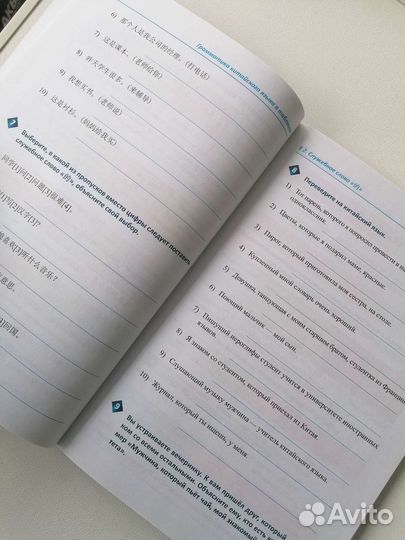 Грамматика китайского языка в таблицах
6) 那个人是我公司的经理。(打电话)
7) 这是课本。(老师给你)
8) 昨天学生很多。(来辅导)
9) 我想买书。(老师说)
10) 这是衬衫。(妈妈给我买)
Выберите, в какой из пропусков вместо цифры следует поставить
служебное слово «的», объясните свой выбор.
同学[1]问[2]问题[3]很难[4]。
[1]写[2]汉字[3]?
喜欢[3]听什么音乐?
意思。
[3]回国。
§ 2. Служебное слово «的»
8 Переведите на китайский язык.
1) Тот парень, которого я попросил провести в н
одноклассник.
2) Цветы, которые я подарил маме, красные.
3) Пирог, который приготовила моя сестра, на столе.
4) Купленный мной словарь очень хороший.
5) Девушка, танцующая с моим старшим братом, студентка из Франции
6) Поющий мальчик — мой сын.
7) Пишущий иероглифы студент учится в университете иностранных
языков.
8) Я знаком со студентом, который приехал из Китая.
9) Слушающий музыку мужчина — учитель китайского языка.
10) Журнал, который ты ищешь, у меня.
9 Вы устраиваете вечеринку. К вам пришёл друг, который
ком со всеми остальными. Объясните ему, кто есть
мер «Мужчина, который пьёт чай, мой знакомый
тета».
Avito